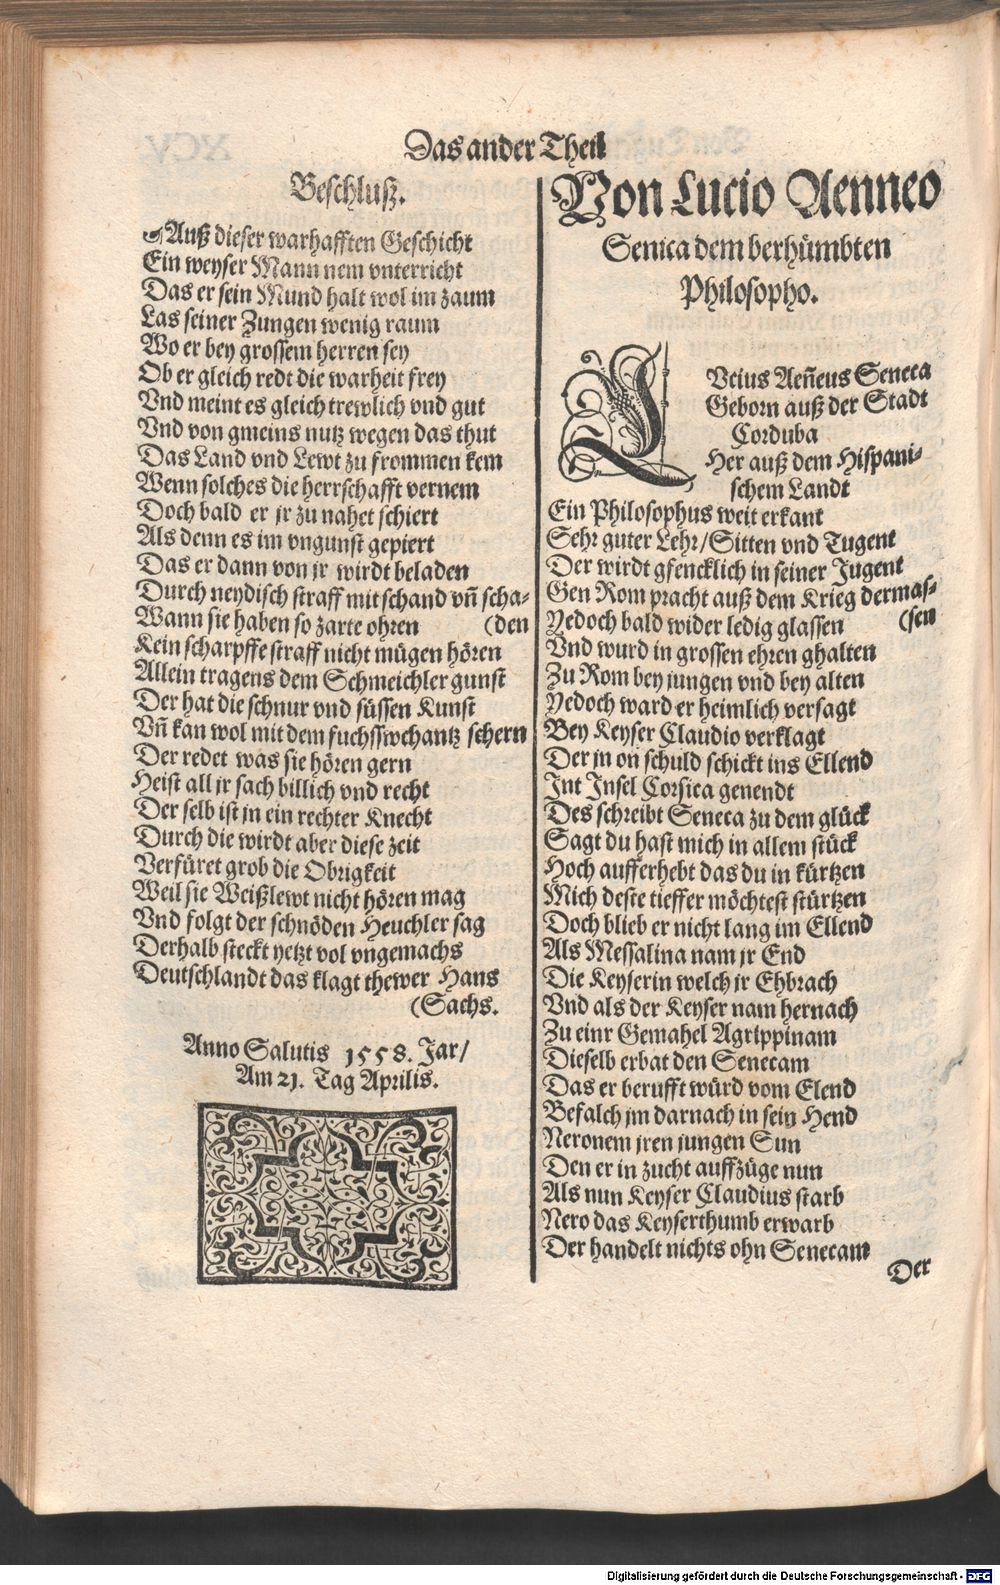 Das ander Theil
Beschluß.
Auß dieser warhafften Geschicht
Ein weyser Mann nem vnterricht
Das er sein Mund halt wol im zaum
Las seiner Zungen wenig raum
Wo er bey grossem herren sey
Ob er gleich redt die warheit frey
Vnd meint es gleich trewlich vnd gut
Vnd von gmeins nutz wegen das thut
Das Land vnd Lewt zu frommen kem
Wenn solches die herrschafft vernem
Doch bald er jr zu nahet schiert
Als denn es im vngunst gepiert
Das er dann von jr wirdt beladen
Durch neydisch straff mit schand vñ scha-
Wann sie haben so zarte ohren (den
Kein scharpffe straff nicht mügen hören
Allein tragens dem Schmeichler gunst
Der hat die schnur vnd süssen Kunst
Vñ kan wol mit dem fuchsswchantz schern
Der redet was sie hören gern
Heist all jr sach billich vnd recht
Der selb ist jn ein rechter Knecht
Durch die wirdt aber diese zeit
Verfüret grob die Obrigkeit
Weil sie Weißlewt nicht hören mag
Vnd folgt der schnöden Heuchler sag
Derhalb steckt yetzt vol vngemachs
Deutschlandt das klagt thewer Hans
(Sachs.
Anno Salutis 1558. Jar/
Am 21. Tag Aprilis.
Von Lucio Aenneo
Senica dem berhümbten
Philosopho.
LVcius Aeñeus Seneca
Geborn auß der Stadt
Corduba
Her auß dem Hispani-
schem Landt
Ein Philosophus weit erkant
Sehr guter Lehr/Sitten vnd Tugent
Der wirdt gfencklich in seiner Jugent
Gen Rom pracht auß dem Krieg dermas-
Yedoch bald wider ledig glassen (sen
Vnd wurd in grossen ehren ghalten
Zu Rom bey jungen vnd bey alten
Yedoch ward er heimlich versagt
Bey Keyser Claudio verklagt
Der jn on schuld schickt ins Ellend
Int Insel Corsica genendt
Des schreibt Seneca zu dem glück
Sagt du hast mich in allem stück
Hoch aufferhebt das du in kürtzen
Mich deste tieffer möchtest stürtzen
Doch blieb er nicht lang im Ellend
Als Messalina nam jr End
Die Keyserin welch jr Ehbrach
Vnd als der Keyser nam hernach
Zu einr Gemahel Agrippinam
Dieselb erbat den Senecam
Das er berufft würd vom Elend
Befalch jm darnach in sein Hend
Neronem jren jungen Sun
Den er in zucht auffzüge nun
Als nun Keyser Claudius starb
Nero das Keyserthumb erwarb
Der handelt nichts ohn Senecam
Der
Digitalisierung gefördert durch die Deutsche Forschungsgemeinschaft - DFG